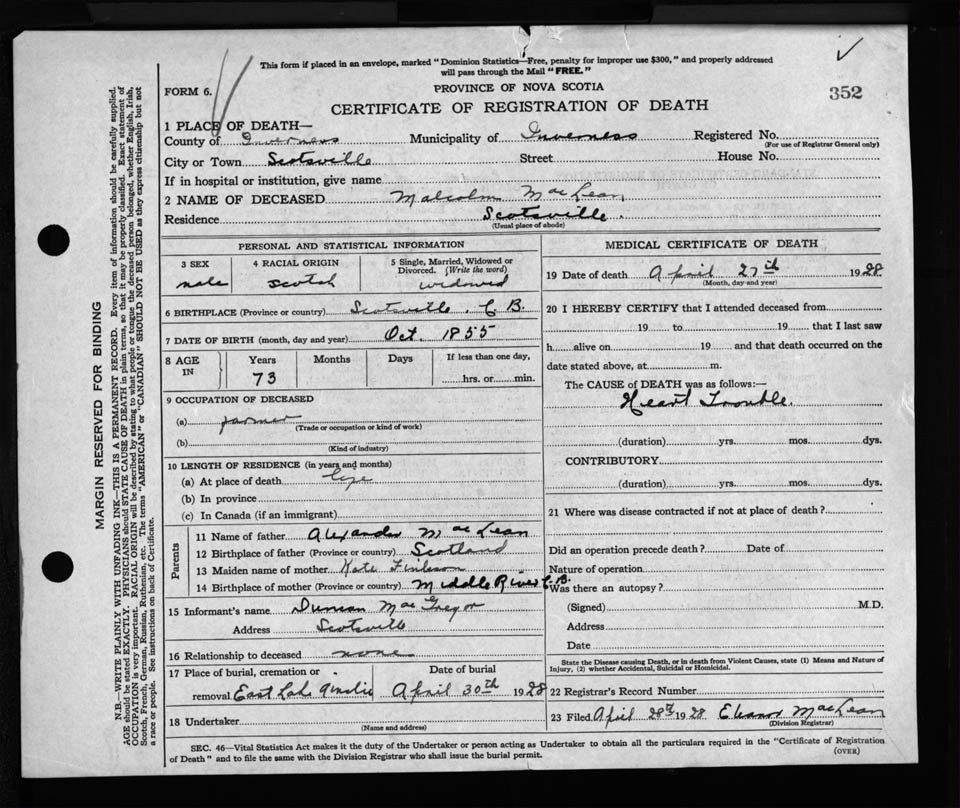 This form if placed in an envelope, marked "Dominion Statistics—Free, penalty for improper use $300," and properly addressed
will pass through the Mail "FREE."
FORM 6.
PROVINCE OF NOVA SCOTIA
352
CERTIFICATE OF REGISTRATION OF DEATH
1 PLACE OF DEATH—
County of Inverness Municipality of Inverness Registered No.
(For use of Registrar General only)
City or Town Scotsville Street House No.
If in hospital or institution, give name
2 NAME OF DECEASED Malcolm MacLean
Residence Scotsville.
(Usual place of abode)
PERSONAL AND STATISTICAL INFORMATION
3 SEX 4 RACIAL ORIGIN 5 Single, Married, Widowed or
Divorced. (Write the word)
male scotch widowed
6 BIRTHPLACE (Province or country) Scotsville, C B.
7 DATE OF BIRTH (month, day and year) Oct. 1855
8 AGE IN Years Months Days If less than one day,
73 hrs. or min.
9 OCCUPATION OF DECEASED
(a) farmer
(Trade or occupation or kind of work)
(b)
(Kind of industry)
10 LENGTH OF RESIDENCE (in years and months)
(a) At place of death life
(b) In province
(c) In Canada (if an immigrant)
Parents
11 Name of father Alexander MacLean
12 Birthplace of father (Province or country) Scotland
13 Maiden name of mother Kate
14 Birthplace of mother (Province or country) Middle River C.B.
15 Informant's name Duncan MacGregor
Address Scotsville
16 Relationship to deceased none
17 Place of burial, cremation or Date of burial
removal East Lake Ainslie April 30th 1928
18 Undertaker
(Name and address)
MEDICAL CERTIFICATE OF DEATH
19 Date of death April 27th 1928
(Month, day and year)
20 I HEREBY CERTIFY that I attended deceased from
19 to 19 that I last saw
h alive on 19 and that death occurred on the
date stated above, at m.
The CAUSE of DEATH was as follows:—
Heart Trouble.
(duration) yrs. mos. dys.
CONTRIBUTORY
(duration) yrs. mos. dys.
21 Where was disease contracted if not at place of death?
Did an operation precede death? Date of
Nature of operation
Was there an autopsy?
(Signed) M.D.
Address
Date
State the Disease causing Death, or in death from Violent Causes, state (1) Means and Nature of
Injury, (2) whether Accidental, Suicidal or Homicidal.
22 Registrar's Record Number
23 Filed April 28th 1928 MacLean
(Division Registrar)
SEC. 46—Vital Statistics Act makes it the duty of the Undertaker or person acting as Undertaker to obtain all the particulars required in the "Certificate of Registration
of Death" and to file the same with the Division Registrar who shall issue the burial permit.
(OVER)
MARGIN RESERVED FOR BINDING
N.B.—WRITE PLAINLY WITH UNFADING INK—THIS IS A PERMANENT RECORD. Every item of information should be carefully supplied.
AGE should be stated EXACTLY. PHYSICIANS should STATE CAUSE OF DEATH in plain terms, so that it may be properly classified. Exact statement of
OCCUPATION is very important. RACIAL ORIGIN will be described by stating to what people or tongue the deceased person belonged, whether English, Irish,
Scotch, French, German, Russian, Ruthenian, etc. The terms "AMERICAN" or "CANADIAN" SHOULD NOT BE USED as they express citizenship but not
a race or people. See instructions on back of Certificate.